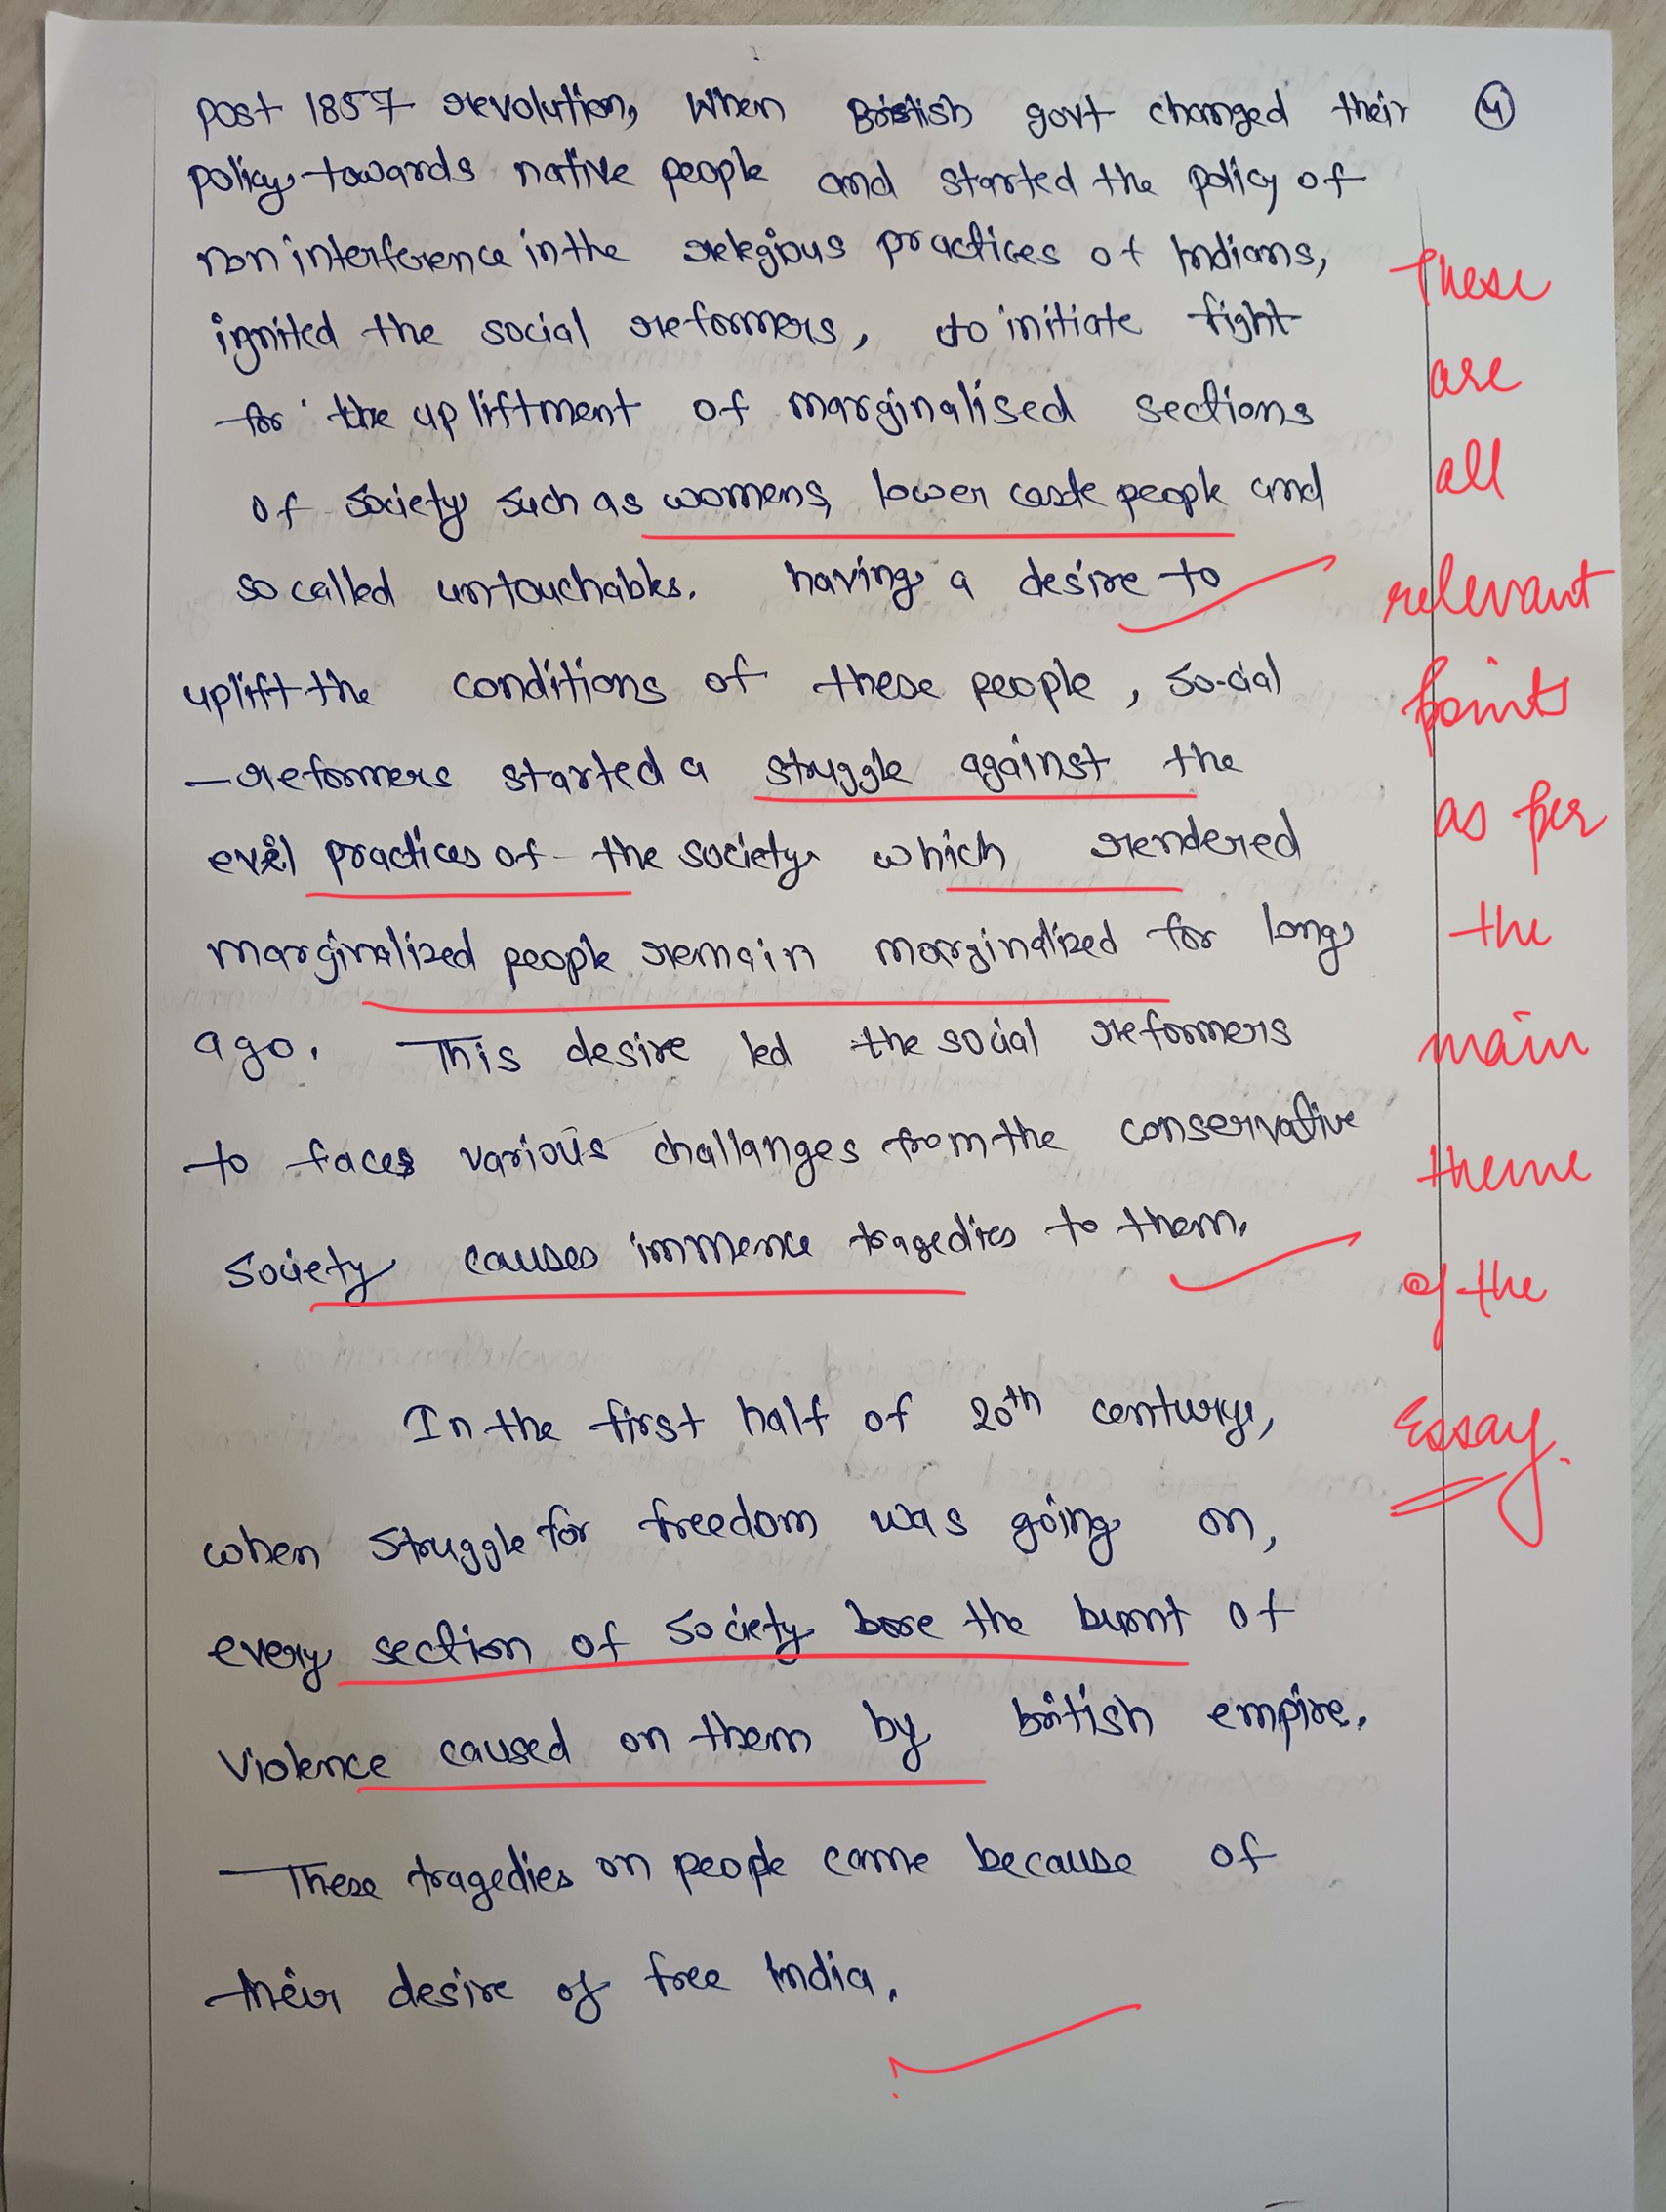 post 1857 revolution, when British govt changed their
4
policy towards native people and started the policy of
non interference in the relegious practices of Indians,
ignited the social reformers, to initiate fight
for the upliftment of marginalised sections
of society such as womens, lower caste people and
so called untouchables. having a desire to
uplift the conditions of these people, social
reformers started a struggle against the
evil practices of the society which rendered
marginalized people remain marginalized for long
ago. This desire led the social reformers
to faces various challanges from the conservative
society causes immence tragedies to them.
In the first half of 20th century,
when struggle for freedom was going on,
every section of society bore the burnt of
violence caused on them by british empire.
These tragedies on people came because of
their desire of free India.
These
are
all
relevant
points
as per
the
main
theme
of the
Essay.